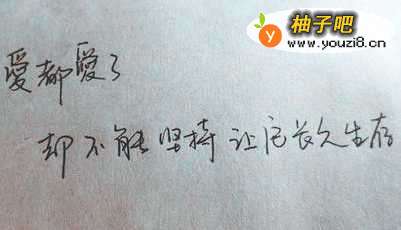 柚子吧
www.youzi8.cn
愛都愛了
却不能坚持让它长久生存